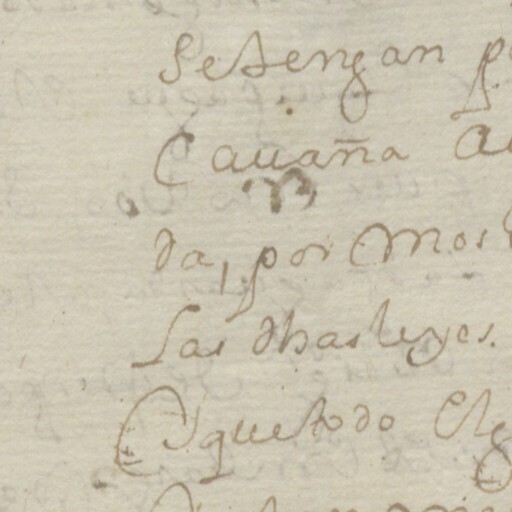 Se tengan p
Cauaña a
da, por Mos
Las dhas leyes.
que todo el